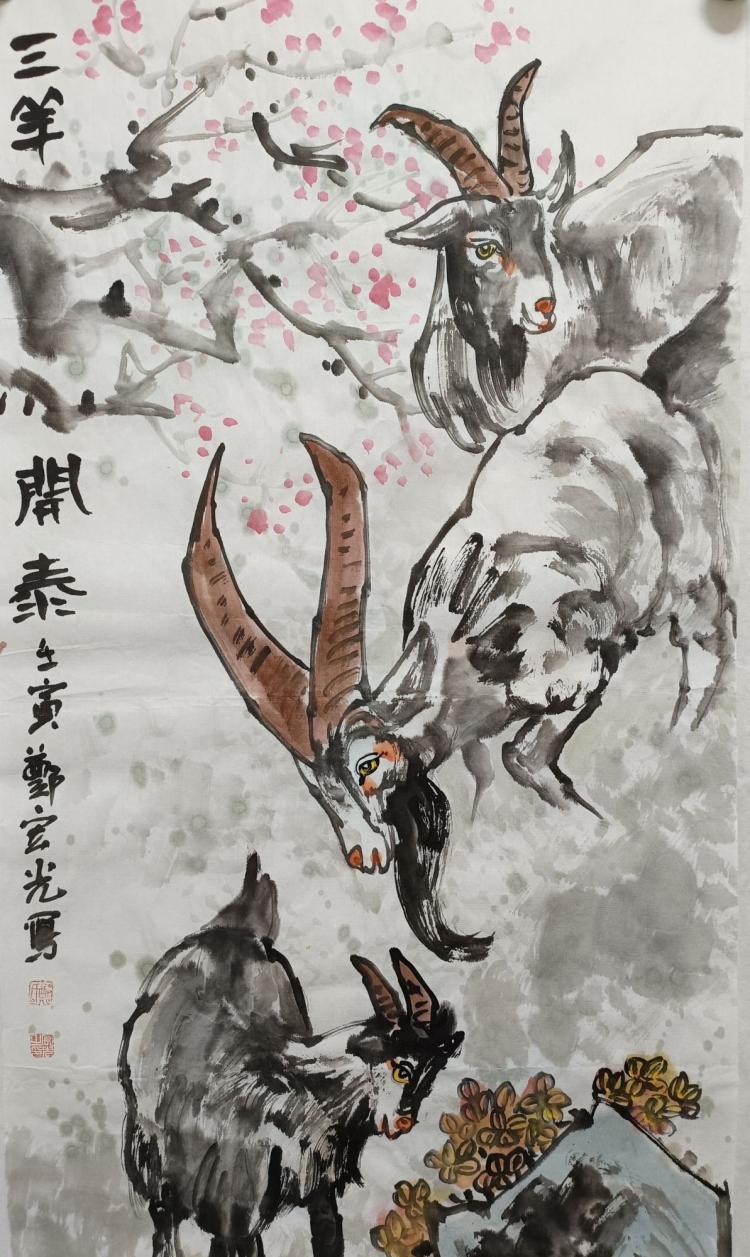 三羊開泰
壬寅鄭宏光寫